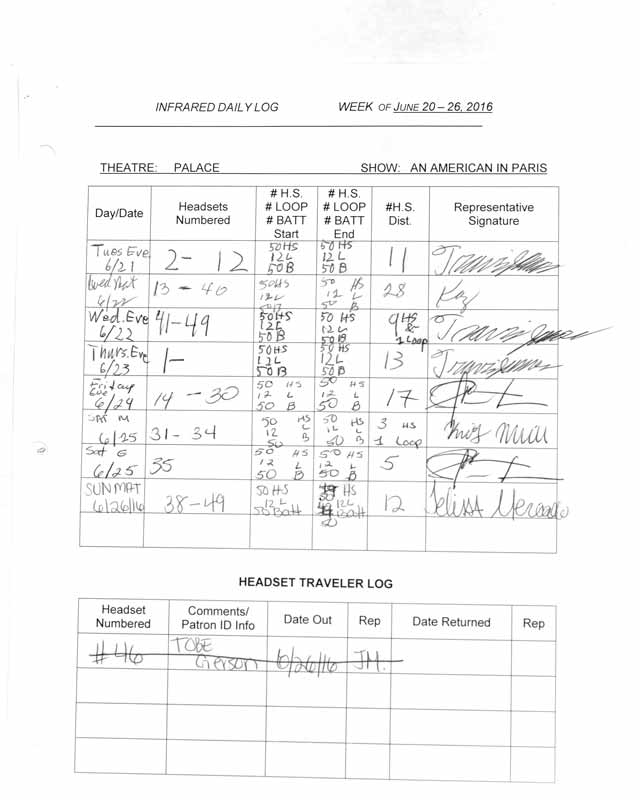 INFRARED DAILY LOG WEEK OF JUNE 20 – 26, 2016
THEATRE: PALACE SHOW: AN AMERICAN IN PARIS
Day/Date
Headsets
Numbered
# H.S.
# LOOP
# BATT
Start
# H.S.
# LOOP
# BATT
End
#H.S.
Dist.
Representative
Signature
Tues Eve
6/21
2 - 12
50 HS
12 L
50 B
50 HS
12 L
50 B
11
Wed Mat
6/22
13 - 40
50 HS
12 L
50 HS
12 L
50 B
28
Kay
Wed. Eve
6/22
41-49
50 HS
12 L
50 B
50 HS
12 L
50 B
9 HS
&
1 Loop
Thurs. Eve
6/23
1-
50 HS
12 L
50 B
50 HS
12 L
50 B
13
Friday
Eve
6/24
14 - 30
50 HS
12 L
50 B
50 HS
12 L
50 B
17
SAT M
6/25
31 - 34
50 HS
12 L
50 B
50 HS
12 L
50 B
3 HS
1 Loop
Sat E
6/25
35
50 HS
12 L
50 B
50 HS
12 L
50 B
5
SUN MAT
6/26/16
38-49
50 HS
12 L
50 Batt
HS
12 L
Batt
12
HEADSET TRAVELER LOG
Headset
Numbered
Comments/
Patron ID Info
Date Out
Rep
Date Returned
Rep
#46
TOBE
Gerson
6/26/16
JM.